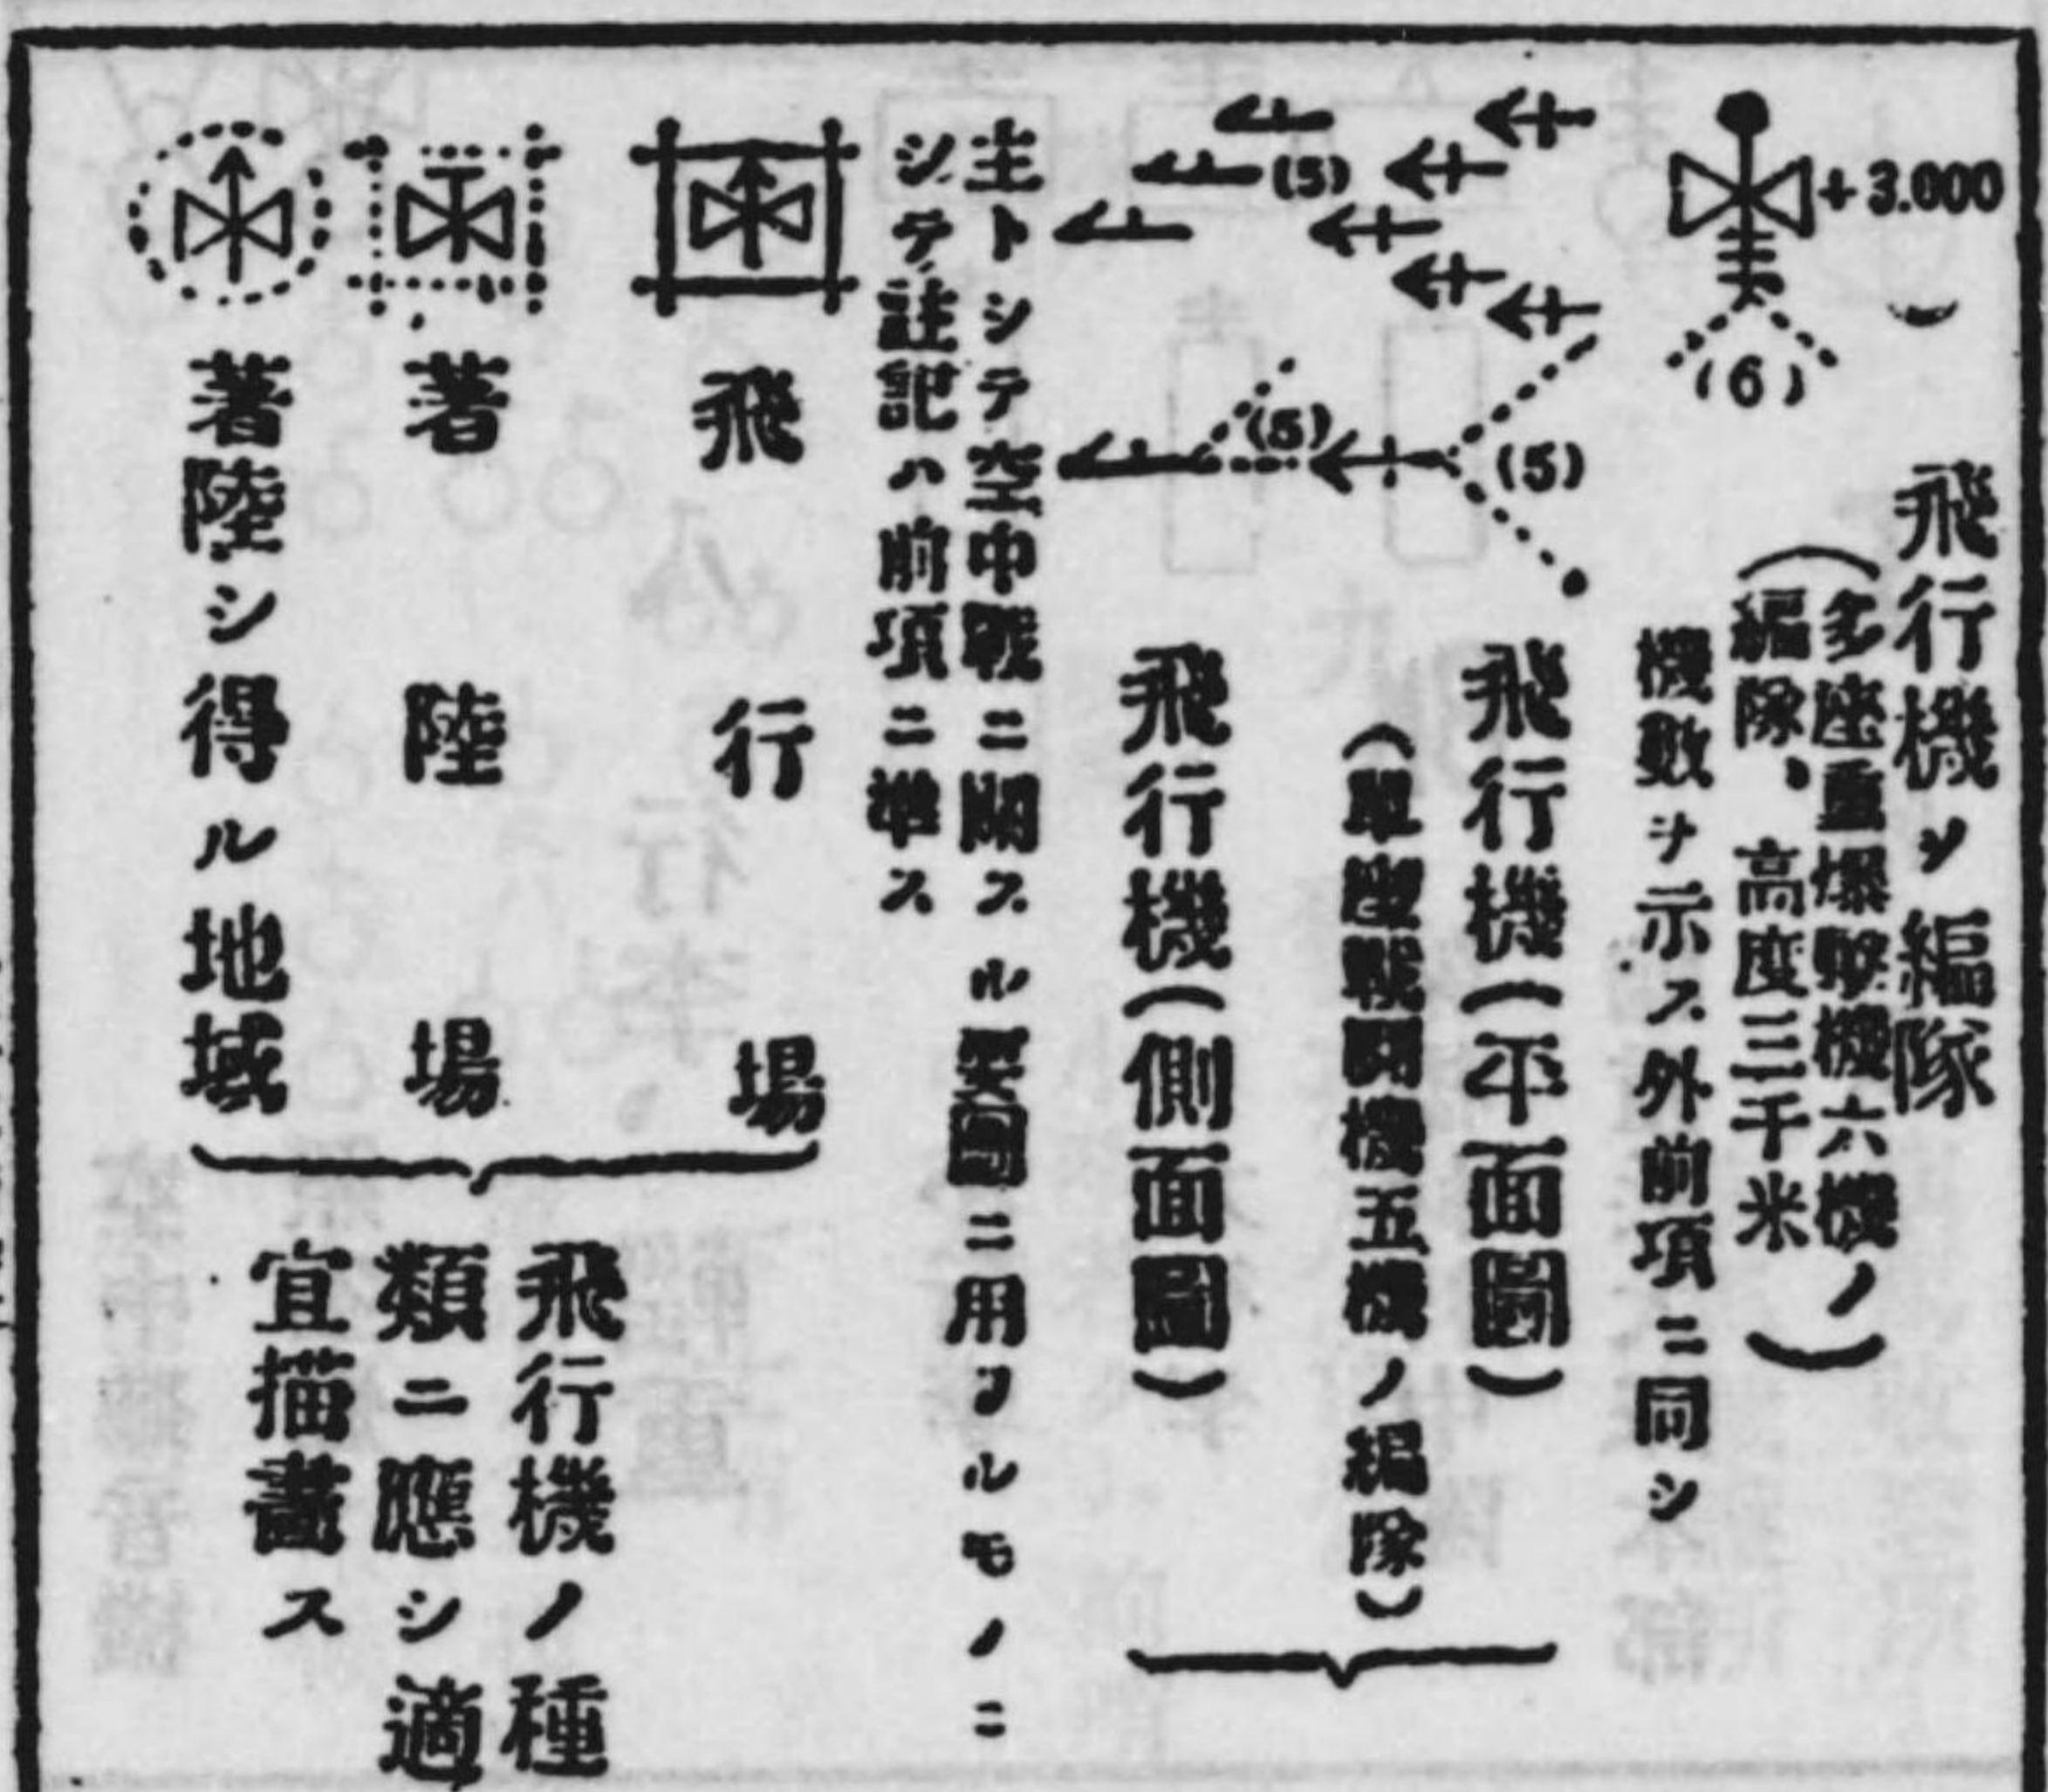 +3.000
(6)
飛行機ノ編隊
(多座重爆擊機六機ノ
編隊、高度三千米)
機數ヲ示ス外前項ニ同シ
(5)
(5)
飛行機(平面圖)
(單座戰鬪機五機ノ編隊)
(5)
飛行機(側面圖)
主トシテ空中戰ニ關スル要圖ニ用フルモノニ
シテ註記ハ前項ニ準ス
飛行場
著陸場
著陸シ得ル地域
飛行機ノ種
類ニ應シ適
宜描畫ス